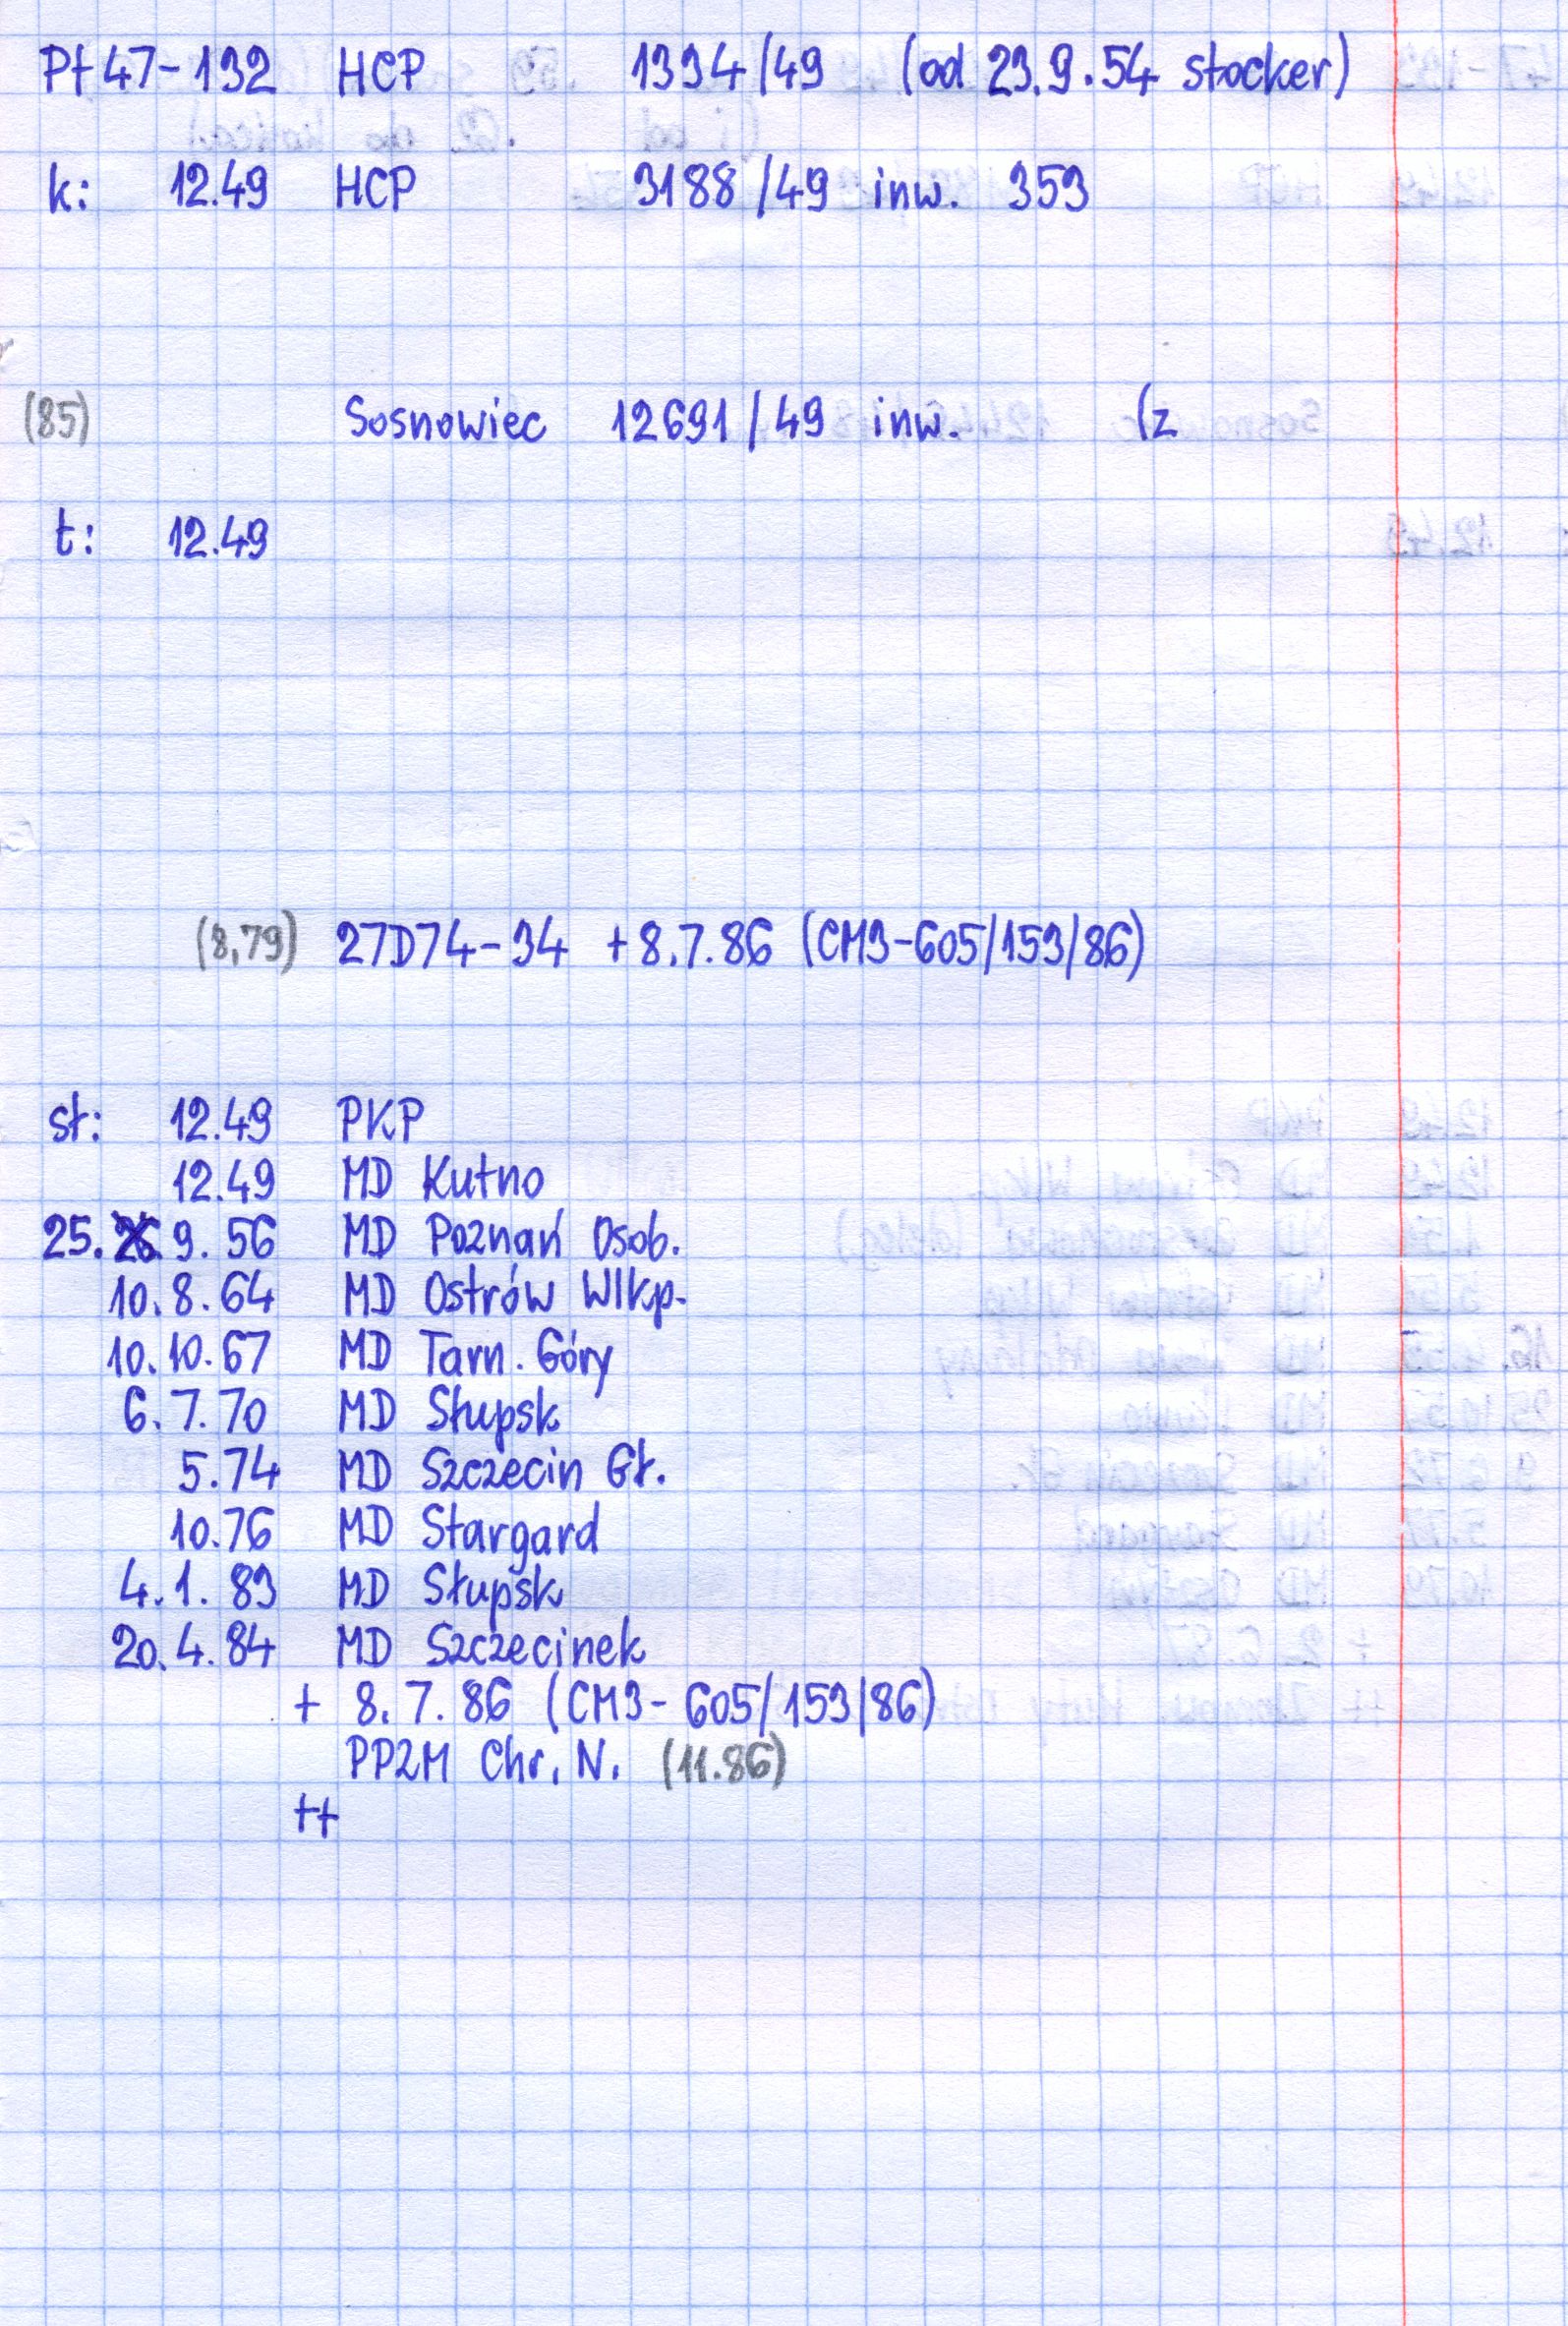 Pt 47-132 HCP 1334/49 (od 23.9.54 stocker)
k: 12.49 HCP 3188/49 inw. 353
(85) Sosnowiec 12691/49 inw. (z
t: 12.49
(8.79) 27D74-34 +8.7.86 (CM3-605/153/86)
st: 12.49 PKP
12.49 MD Kutno
25.9.56 MD Poznań Osob.
10.8.64 MD Ostrów Wlkp.
10.10.67 MD Tarn. Góry
6.7.70 MD Słupsk
5.74 MD Szczecin Gł.
10.76 MD Stargard
4.1.83 MD Słupsk
20.4.84 MD Szczecinek
+ 8.7.86 (CM3-605/153/86)
PPZM Chr. N. (11.86)
++